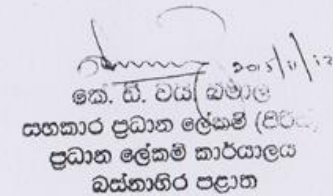 2015/11/12
කේ. ඩී. වයි
සහකාර ප්‍රධාන ලේකම්
ප්‍රධාන ලේකම් කාර්යාලය
බස්නාහිර පළාත